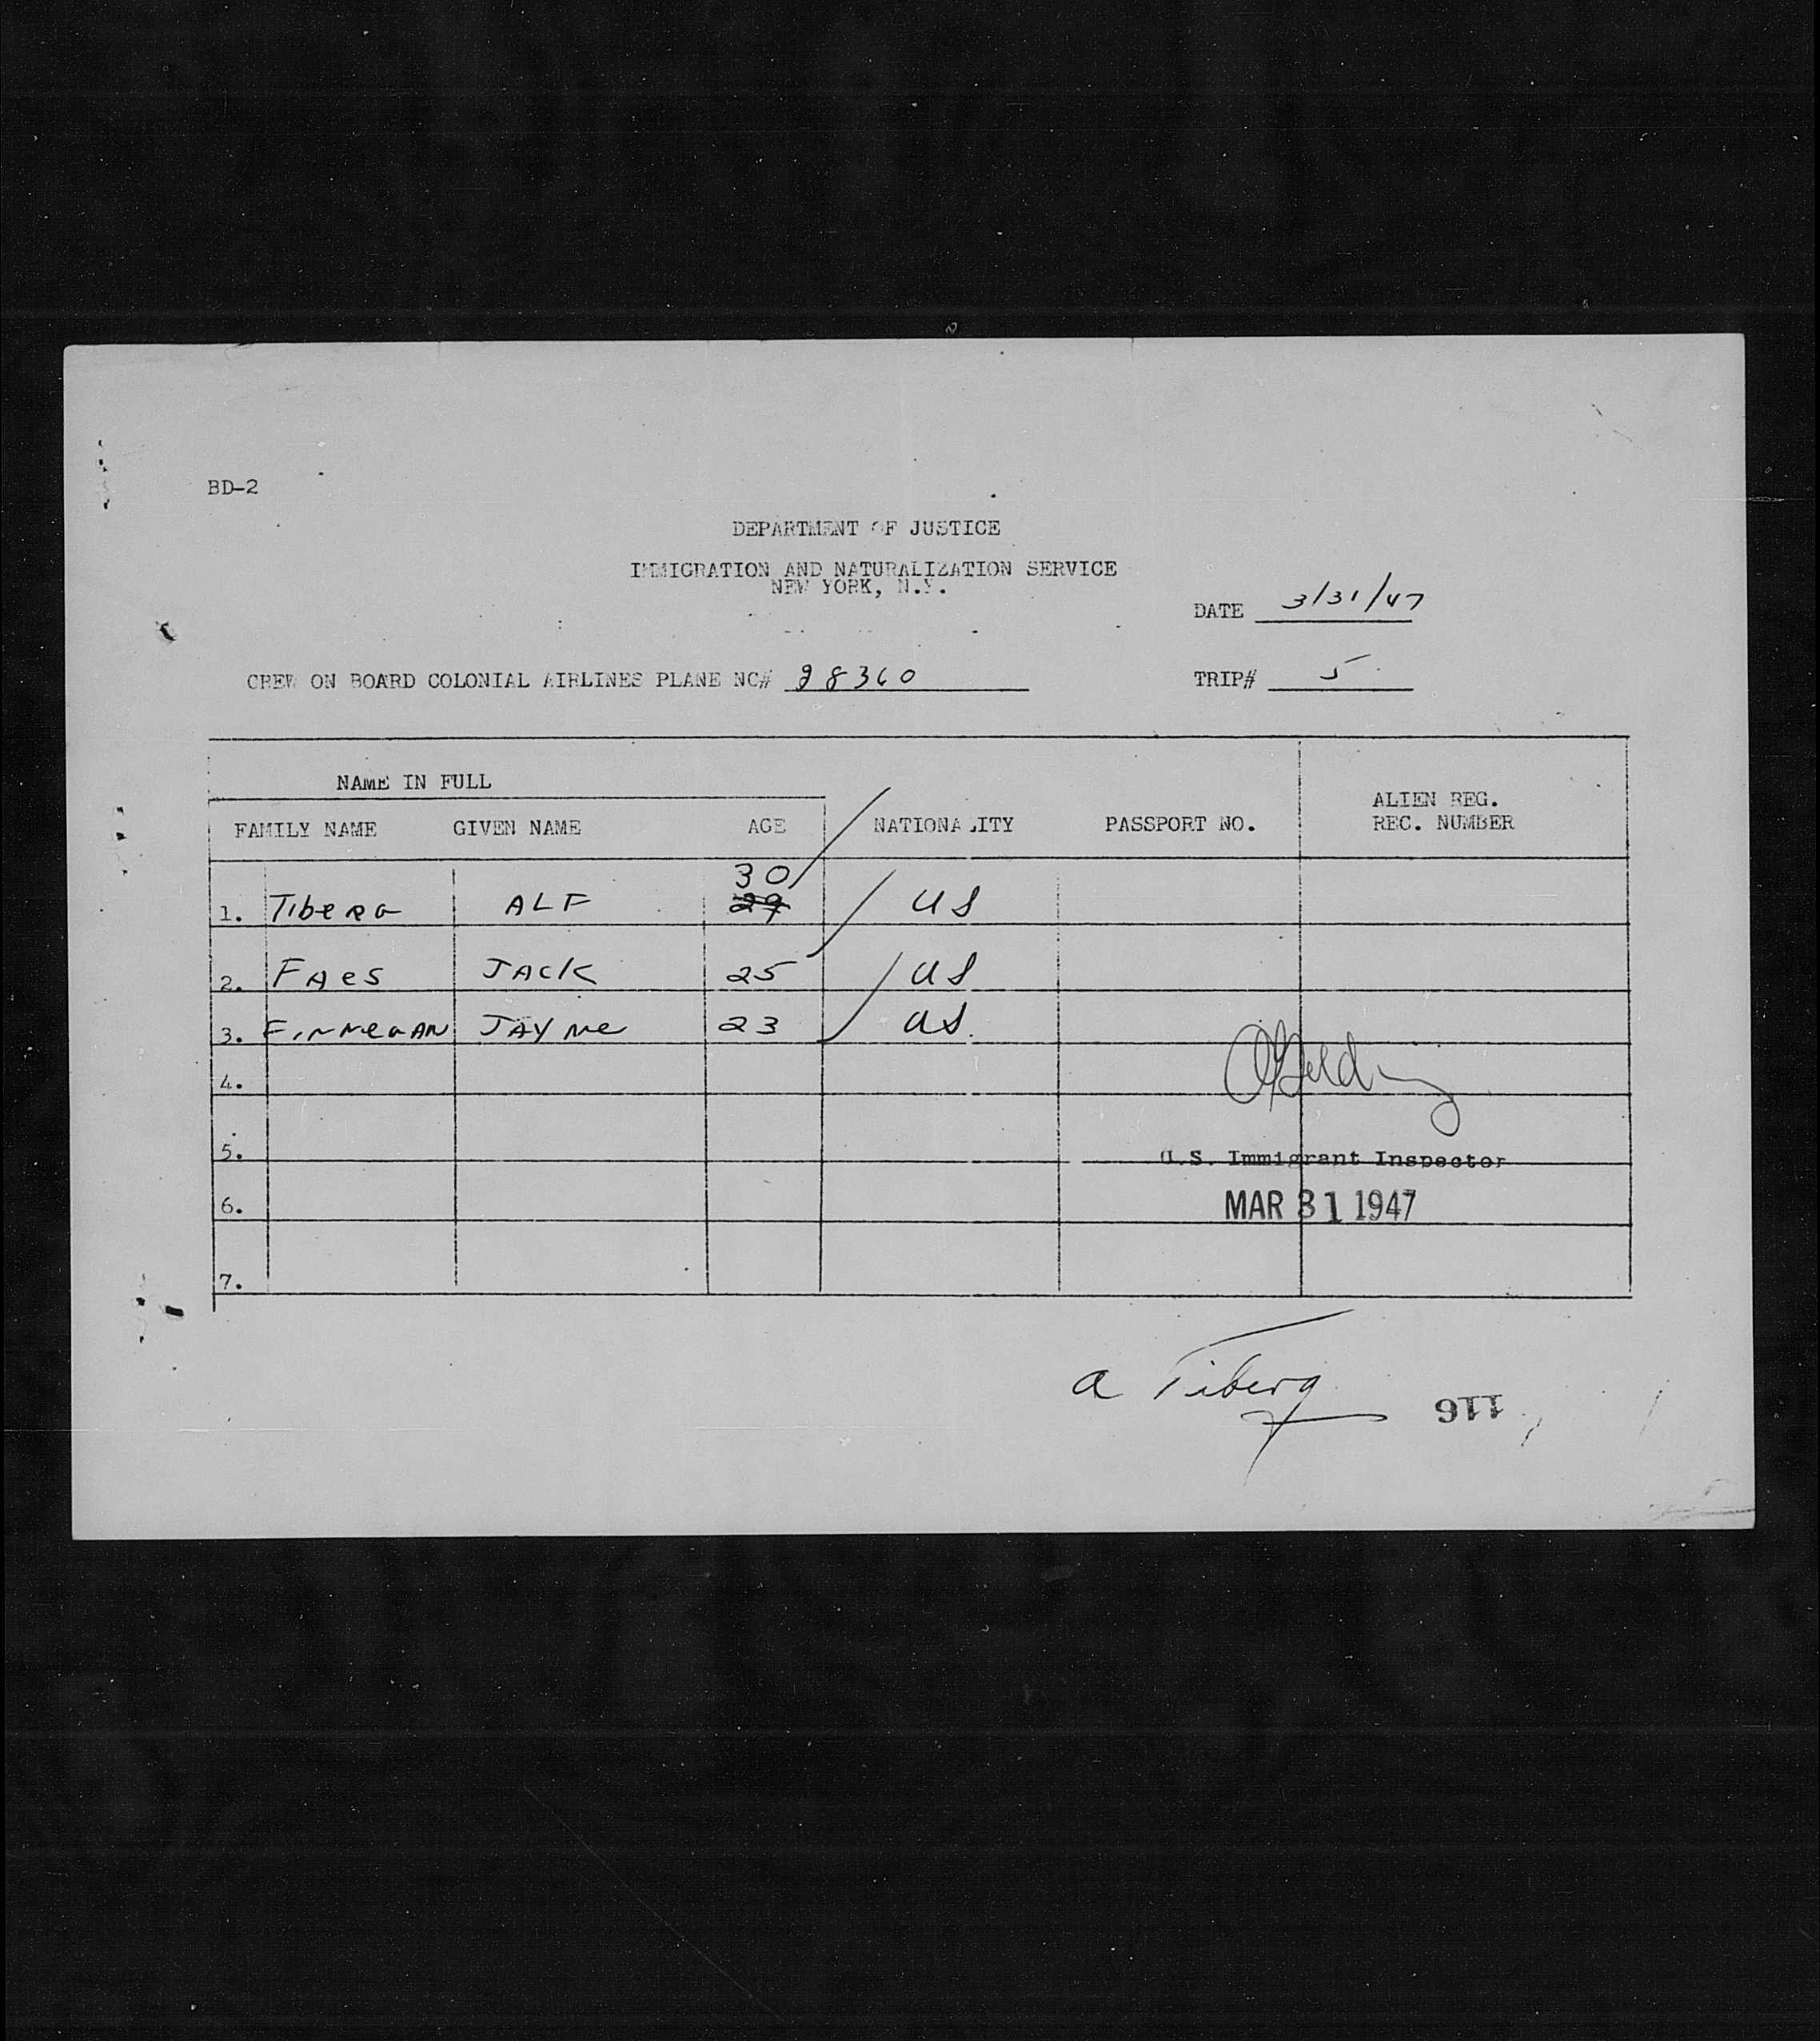 BD-2
DEPARTMENT OF JUSTICE
IMMIGRATION AND NATURALIZATION SERVICE
NEW YORK, N.Y.
DATE 3/31/47
CREW ON BOARD COLONIAL AIRLINES PLANE NC# 28360
TRIP# 5
NAME IN FULL
FAMILY NAME GIVEN NAME AGE NATIONALITY PASSPORT NO. ALIEN REG. REC. NUMBER
30
1. Tiberg ALF 29 US
2. FAes JACK 25 US
3. FinnegAN JAYNe 23 US.
4.
5.
U.S. Immigrant Inspector
6.
MAR 31 1947
7.
a Tiberg
116